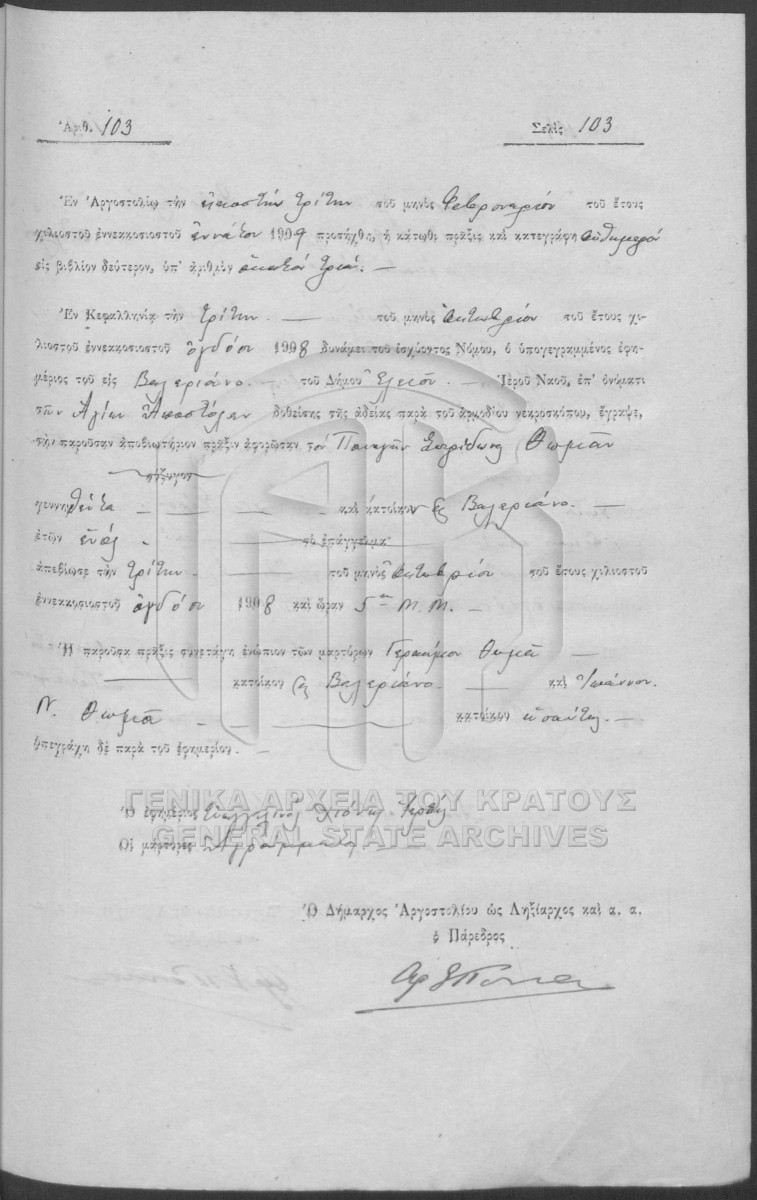 Ἀριθ. 103 Σελὶς 103
Ἐν Ἀργοστολίῳ τὴν εἰκοστὴν τρίτην τοῦ μηνὸς Φεβρουαρίου τοῦ ἔτους
χιλιοστοῦ ἐννεακοσιοστοῦ ἐννάτου 1909 προσήχθη, ἡ κάτωθι πρᾶξις καὶ κατεγράφη αὐθημερὸν
εἰς βιβλίον δεύτερον, ὑπ' ἀριθμὸν ἑκατὸν τρία. —
Ἐν Κεφαλληνίᾳ τὴν τρίτην — τοῦ μηνὸς Ὀκτωβρίου τοῦ ἔτους χι-
λιοστοῦ ἐννεακοσιοστοῦ ὀγδόου 1908 δυνάμει τοῦ ἰσχύοντος Νόμου, ὁ ὑπογεγραμμένος ἐφη-
μέριος τοῦ εἰς Βαλεριάνο — τοῦ Δήμου Ἐλειοῦ — Ἱεροῦ Ναοῦ, ἐπ' ὀνόματι
τῶν Ἁγίων Ἀποστόλων δοθείσης τῆς ἀδείας παρὰ τοῦ ἁρμοδίου νεκροσκόπου, ἔγραψε,
τὴν παροῦσαν ἀποβιωτήριον πρᾶξιν ἀφορῶσαν τὸν Παναγῆν Σπυρίδωνος Θωμᾶν
σύζυγον
γεννηθέντα — — — — καὶ κάτοικον ἐς Βαλεριάνο. —
ἐτῶν ἑνός — τὸ ἐπάγγελμα
ἀπεβίωσε τὴν τρίτην — τοῦ μηνὸς Ὀκτωβρίου τοῦ ἔτους χιλιοστοῦ
ἐννεακοσιοστοῦ ὀγδόου 1908 καὶ ὥραν 5ην Μ.Μ. —
Ἡ παροῦσα πρᾶξις συνετάγη ἐνώπιον τῶν μαρτύρων Γερασίμου Θωμᾶ —
— κατοίκου ἐς Βαλεριάνο. — καὶ Ἰωάννου.
Ν. Θωμᾶ — — — κατοίκου ὡσαύτως. —
ὑπεγράφη δὲ παρὰ τοῦ ἐφημερίου. —
ΓΕΝΙΚΑ ΑΡΧΕΙΑ ΤΟΥ ΚΡΑΤΟΥΣ
Ὁ ἐφημέριος Εὐαγγελινὸς Χιόνης Ἱερεύς
GENERAL STATE ARCHIVES
Οἱ μάρτυρες Ἀγράμματοι
Ὁ Δήμαρχος Ἀργοστολίου ὡς Ληξίαρχος καὶ α. α.
ὁ Πάρεδρος